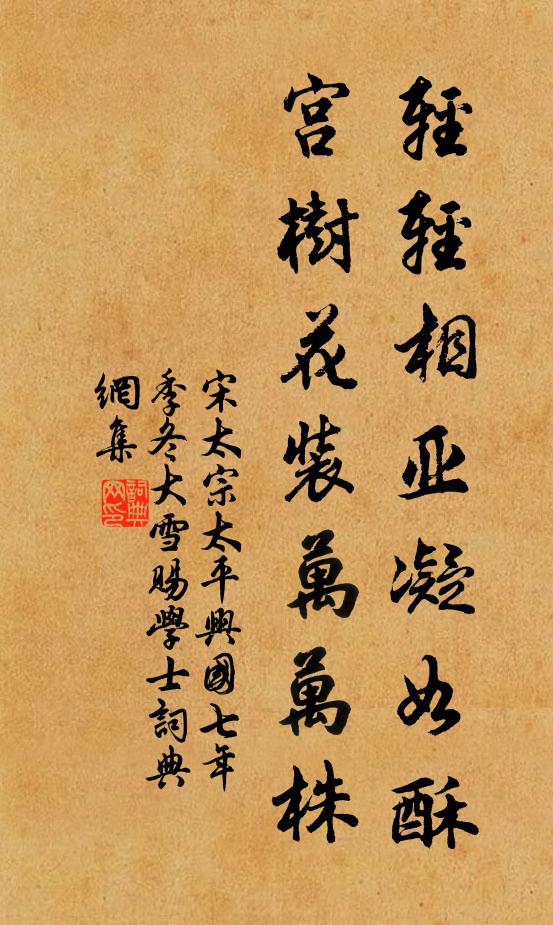 輕輕相亚凝如酥
宮樹花裝萬萬株
宋太宗太平興國七年
季冬大雪賜學士詞典
網集
詞典
網印